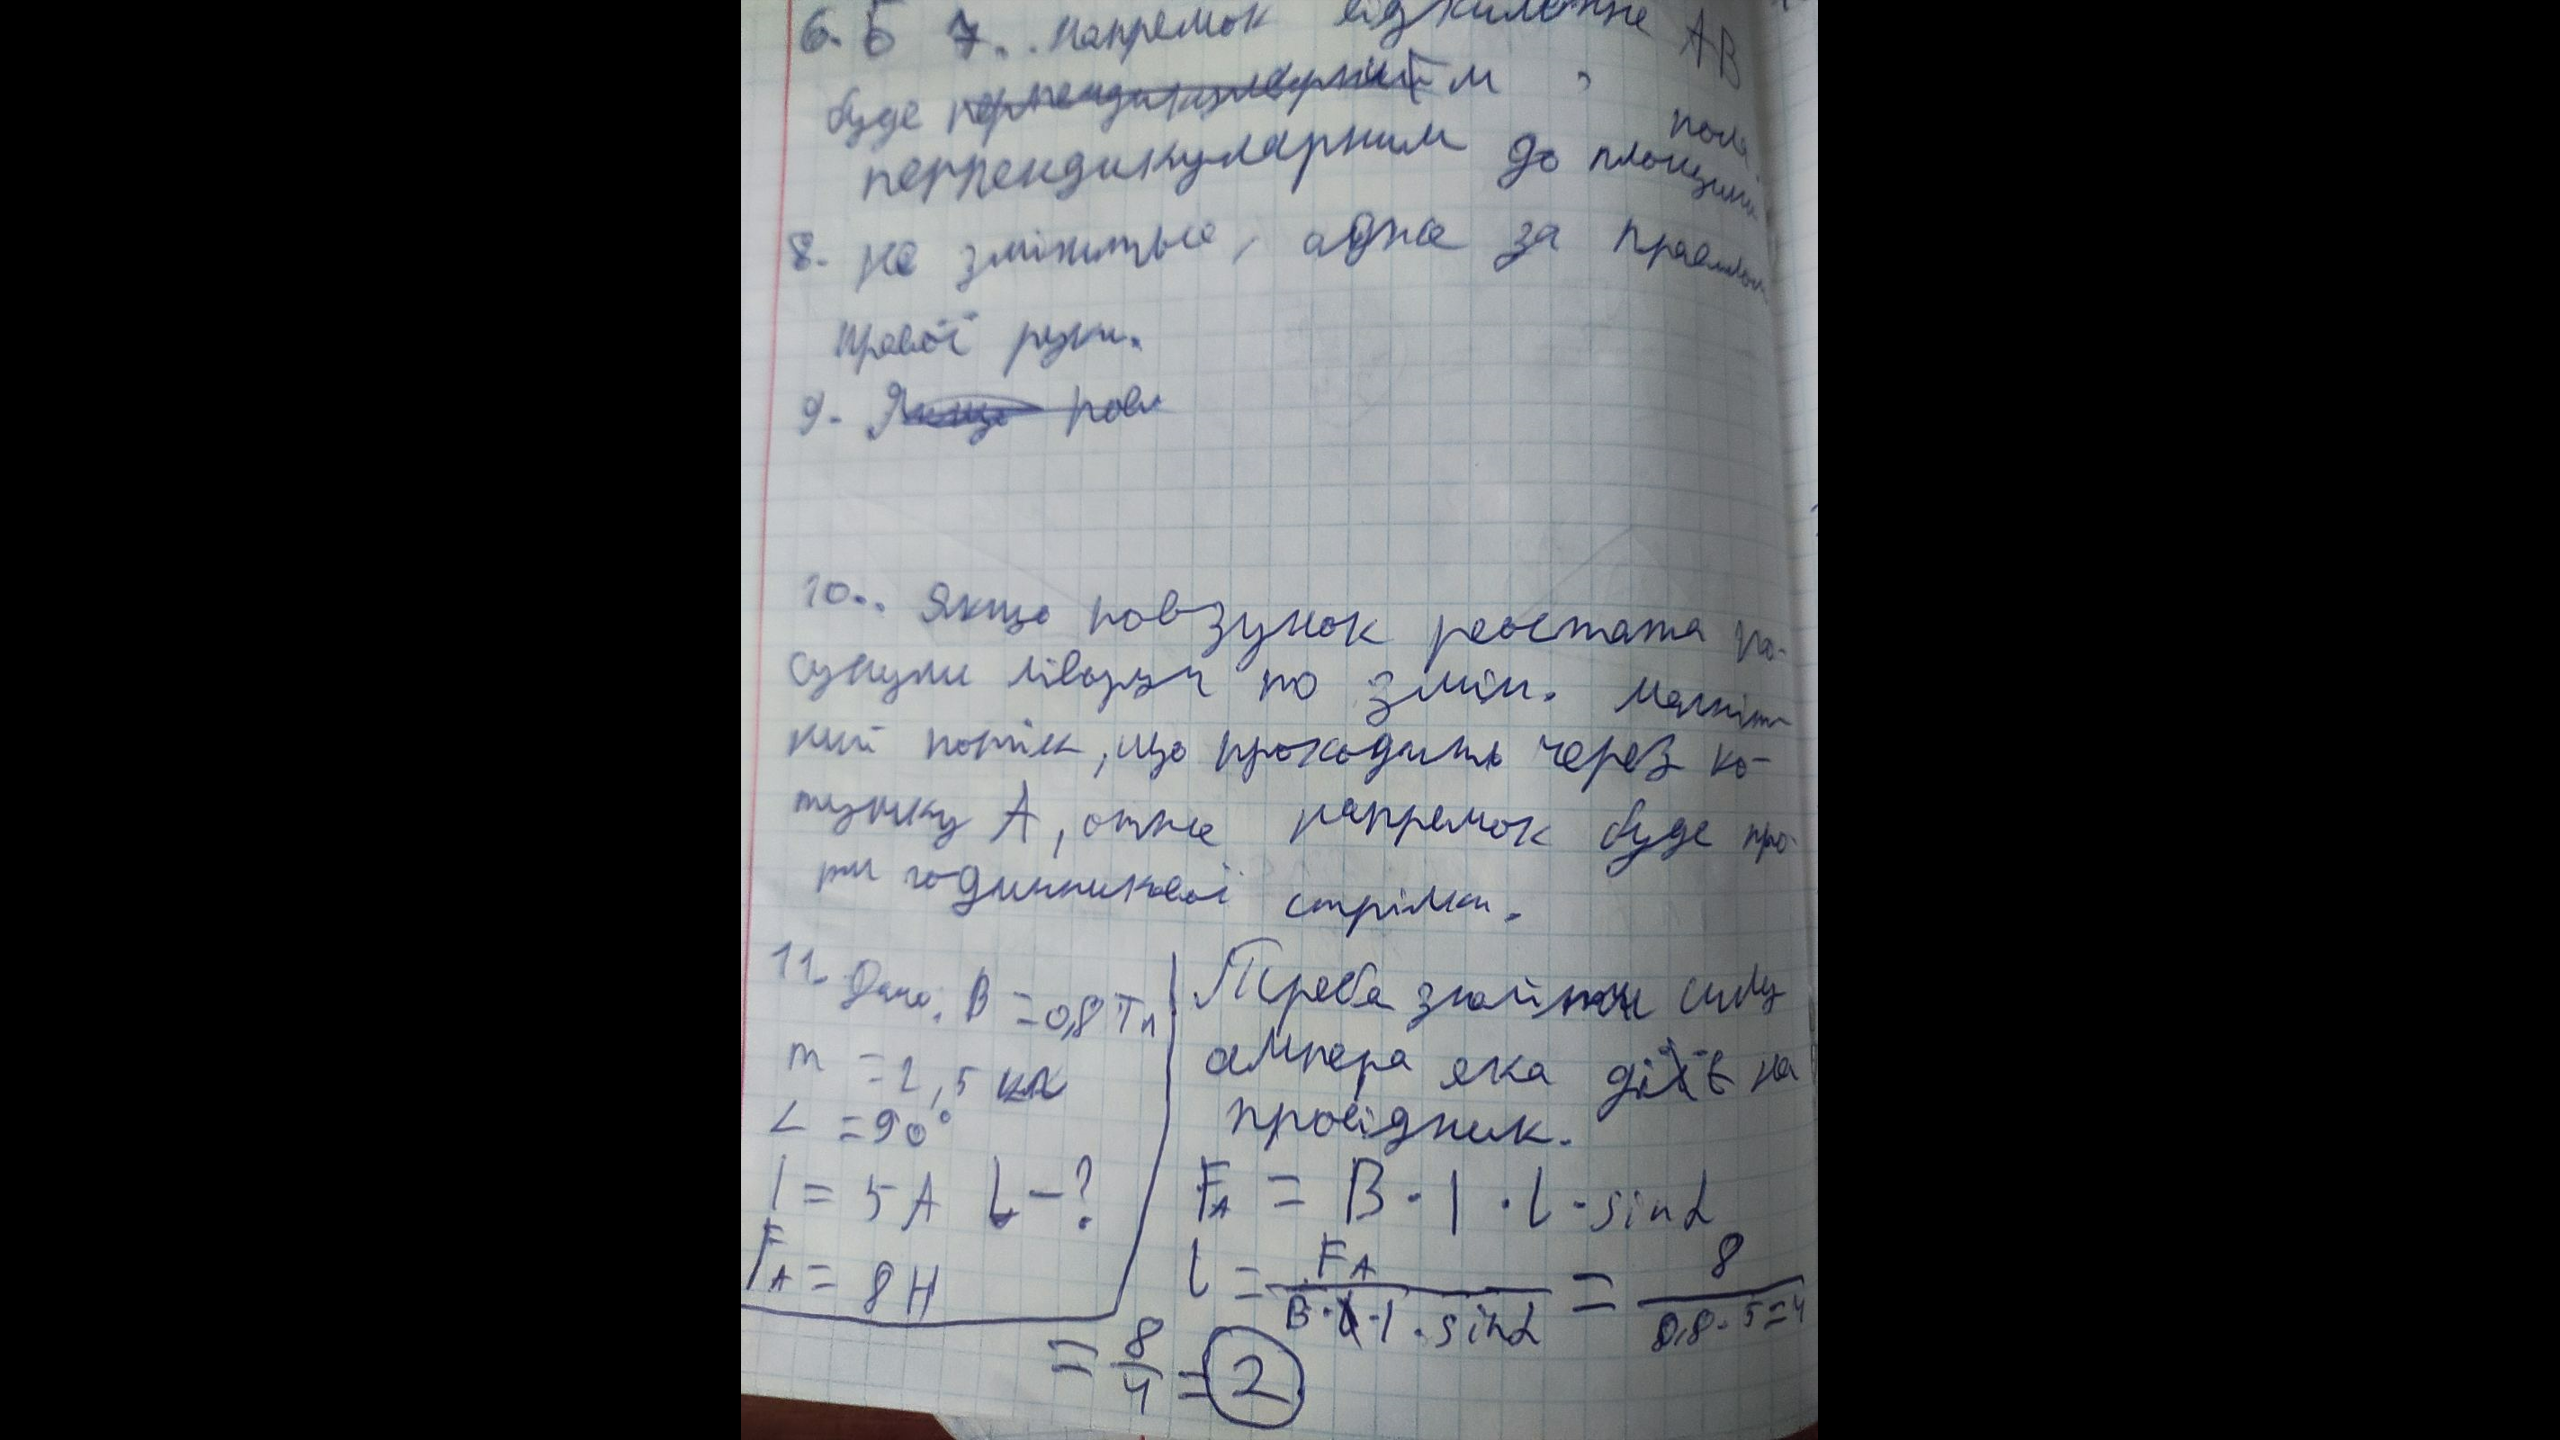 6. Б 7. . напрямок відхилення АВ
буде перпендикулярнітм , поля
перпендикулярним до площини
8. не зміниться, адже за правилом
правої руки.
9. Якщо пов
10.. Якщо повзунок реостата по-
сунули ліворуч то змін. магніт
ний потік, що проходить через ко-
тушку А, отже напрямок буде про-
ти годинникової стрілки.
11. Дано: B = 0,8 Тл
m = 2,5 кг
∠ = 90°
I = 5 A L - ?
FA = 8 H
Треба знайти силу
ампера яка діє на
провідник.
FA = B · I · l · sin α
l = FA / B · I · sin α = 8 / 0,8 · 5 = 4
= 8/4 = 2